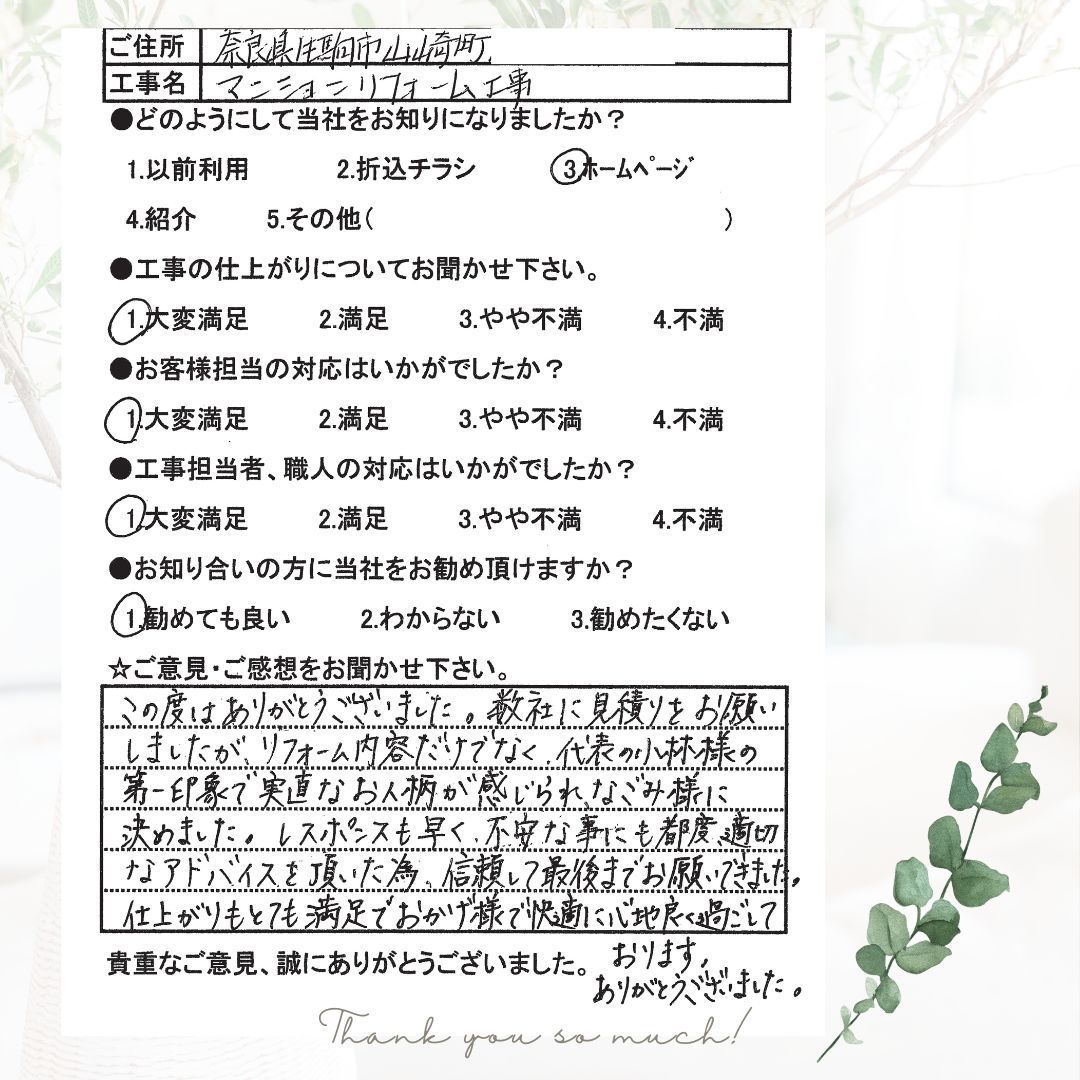 ご住所 奈良県生駒市山崎町
工事名 マンションリフォーム工事
●どのようにして当社をお知りになりましたか？
1.以前利用 2.折込チラシ 3.ホームページ
4.紹介 5.その他( )
●工事の仕上がりについてお聞かせ下さい。
1.大変満足 2.満足 3.やや不満 4.不満
●お客様担当の対応はいかがでしたか？
1.大変満足 2.満足 3.やや不満 4.不満
●工事担当者、職人の対応はいかがでしたか？
1.大変満足 2.満足 3.やや不満 4.不満
●お知り合いの方に当社をお勧め頂けますか？
1.勧めても良い 2.わからない 3.勧めたくない
☆ご意見・ご感想をお聞かせ下さい。
この度はありがとうございました。数社に見積りをお願い
しましたが、リフォーム内容だけでなく、代表の小林様の
第一印象で実直なお人柄が感じられ、なごみ様に
決めました。レスポンスも早く、不安な事にも都度、適切
なアドバイスを頂いた為、信頼して最後までお願いできました。
仕上がりもとても満足でおかげ様で快適に心地良く過ごして
おります。
ありがとうございました。
貴重なご意見、誠にありがとうございました。
Thank you so much!